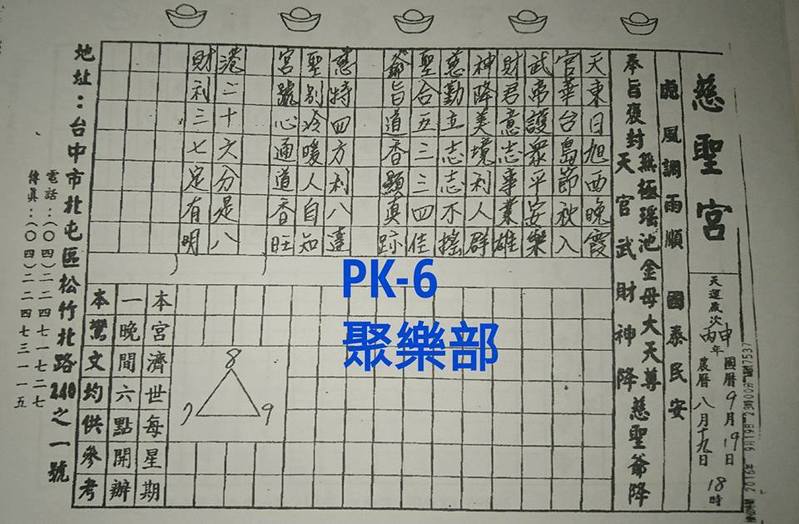 慈聖宮
天運歲次丙申年
國曆9月19日
農曆八月十九日
18時
風調雨順 國泰民安
無極瑤池金母大天尊 慈聖爺降
奉旨褒封天官武財神降
天東日旭西晚霞
官華台島節秋入
武帝護眾平安樂
財君意志事業雄
神降美境利人群
慈勤立志志不搖
聖合五三三四佳
爺旨道香顯真跡
慈特四方利八達
聖別冷暖人自知
宮號心通道香旺
港二十六分是八
財利三七定有明
8
7 9
本宮濟世每星期
一晚間六點開辦
本鸞文均供參考
地址：台中市北屯區松竹北路240之一號
電話：(04)22471727
傳真：(04)22473115
PK-6
聚樂部